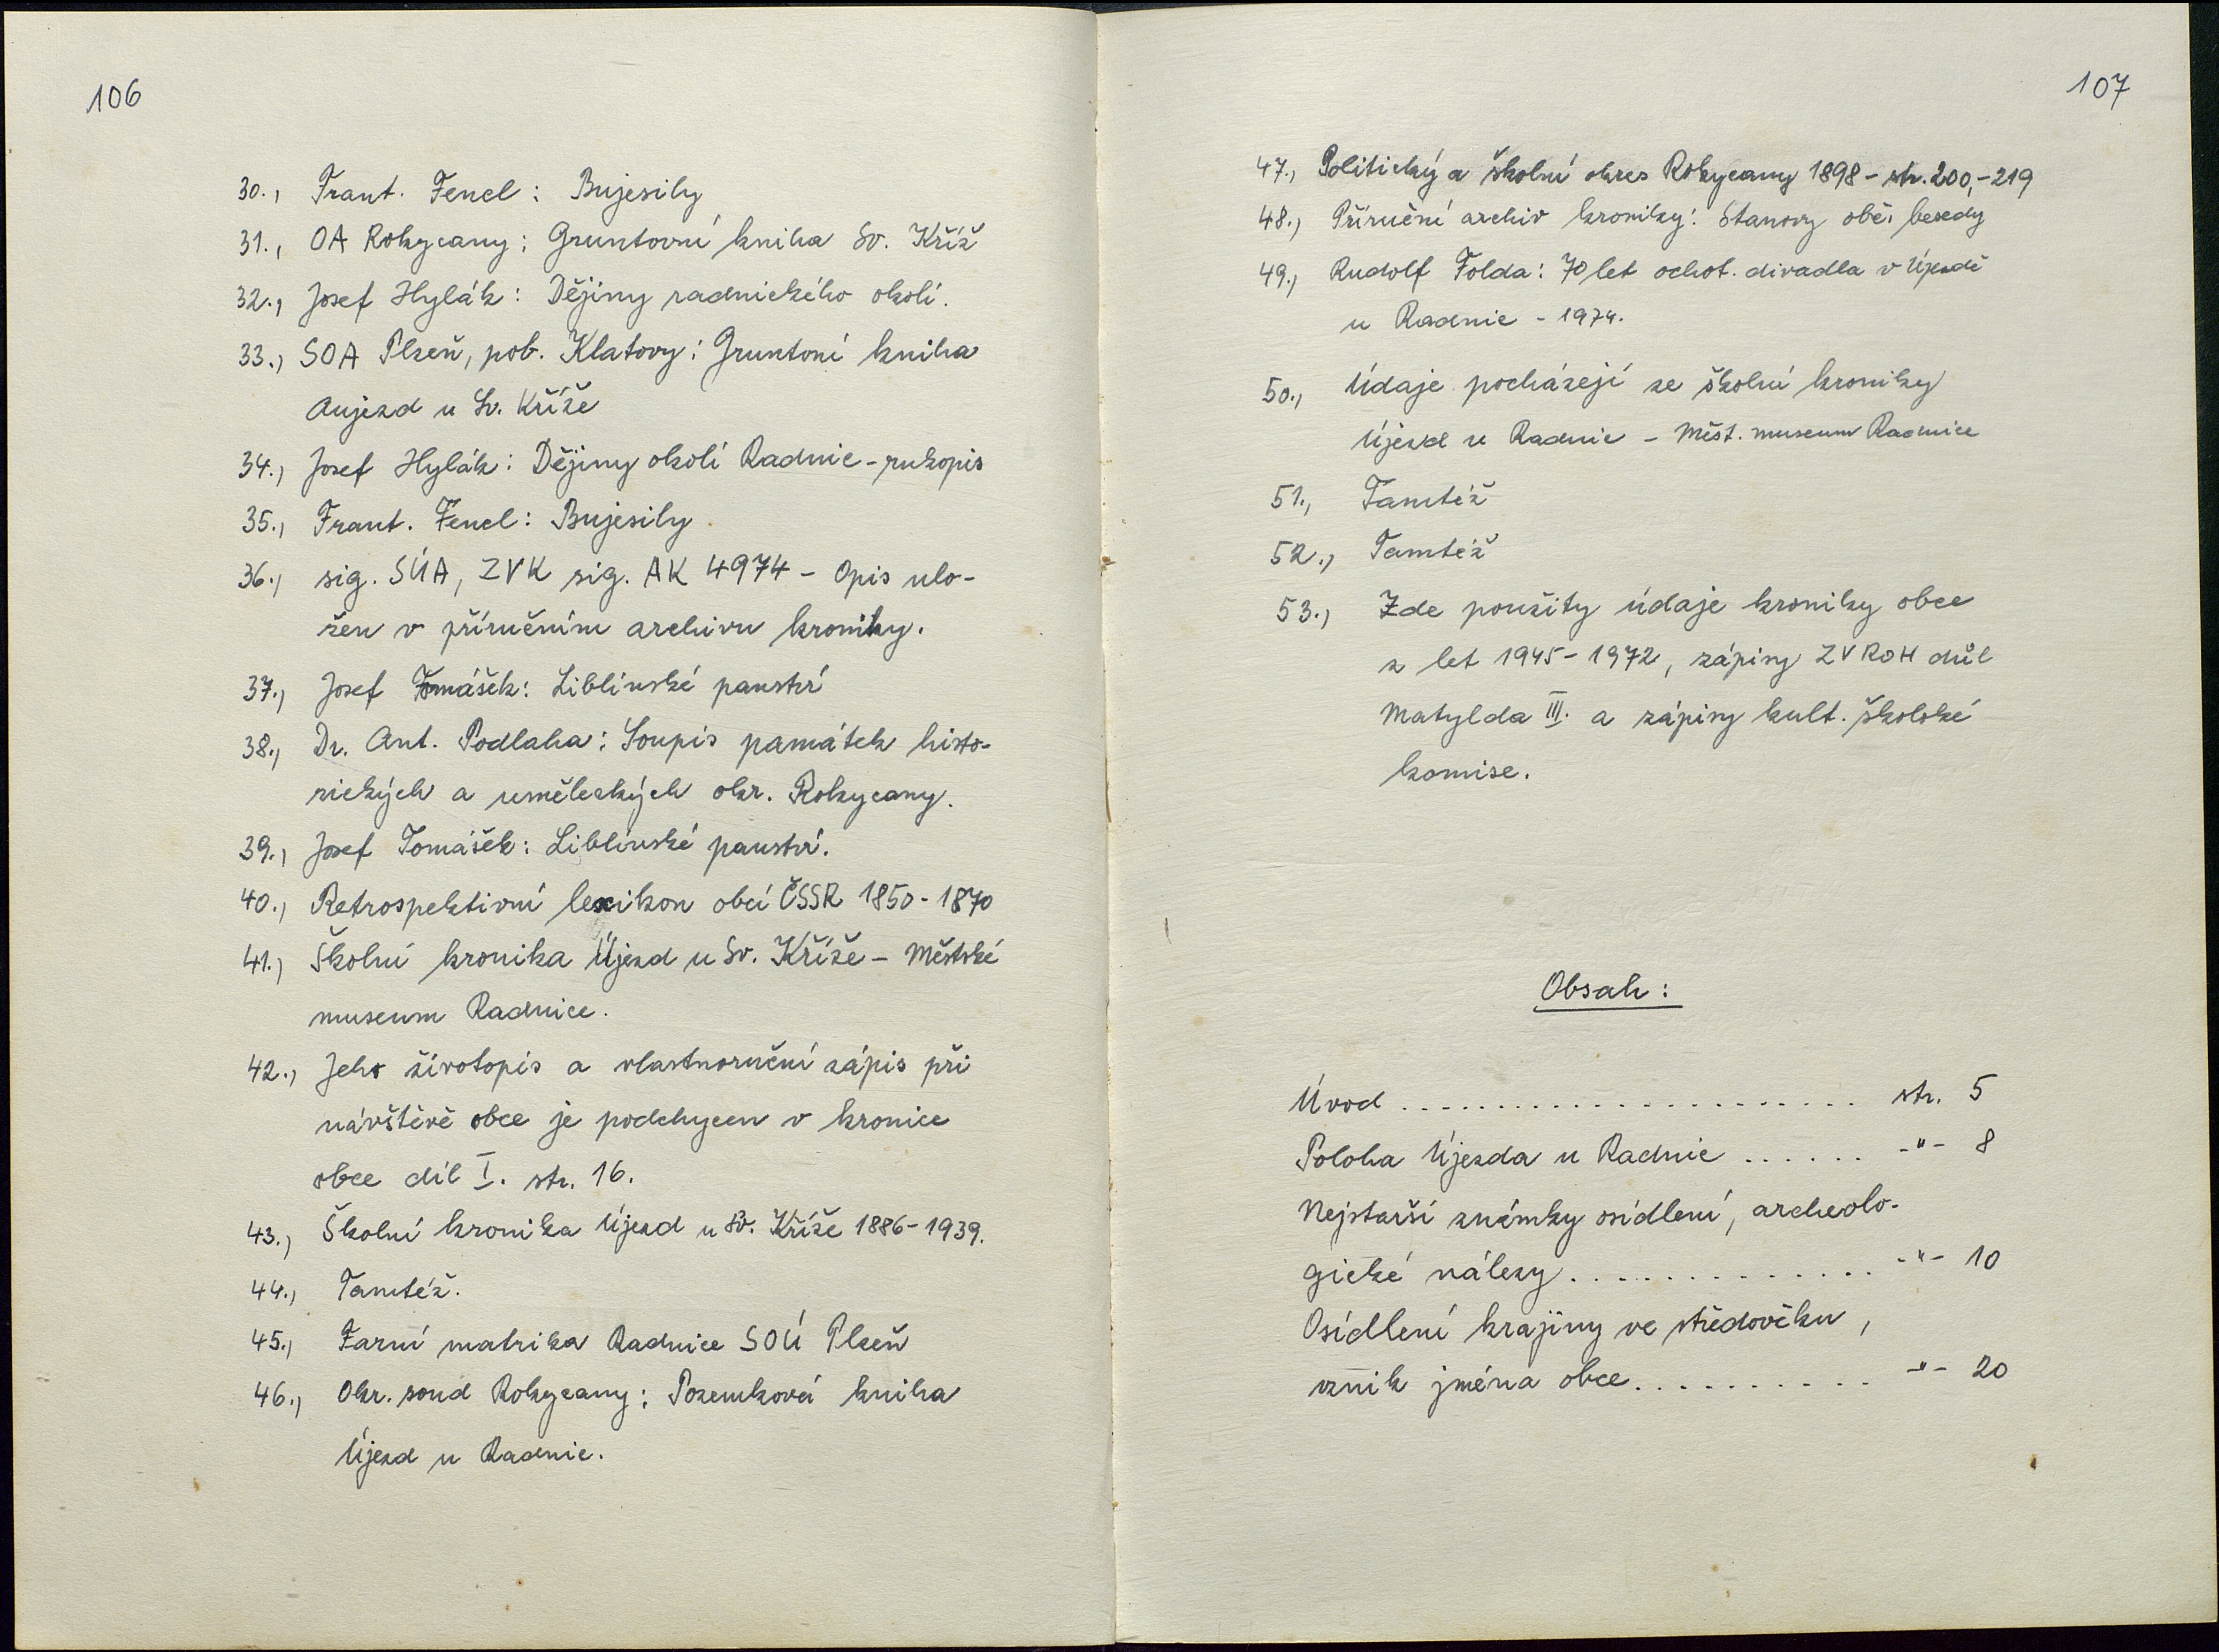 106
30., Frant. Fencl: Bujesily
31., OA Rokycany: Gruntovní kniha Sv. Kříž
32., Josef Hylák: Dějiny radnického okolí.
33., SOA Plzeň, pob. Klatovy: Gruntoní kniha
Aujezd u Sv. Kříže
34., Josef Hylák: Dějiny okolí Radnic - rukopis
35., Frant. Fencl: Bujesily
36., sig. SÚA, ZVK sig. AK 4974 - Opis ulo-
žen v příručním archivu kroniky.
37., Josef Tomášek: Liblínské panství
38., Dr. Ant. Podlaha: Soupis památek histo-
rických a uměleckých okr. Rokycany.
39., Josef Tomášek: Liblínské panství.
40., Retrospektivní lexikon obcí ČSSR 1850-1870
41., Školní kronika Újezd u Sv. Kříže - Městské
museum Radnice.
42., Jeho životopis a vlastnoruční zápis při
návštěvě obce je podchycen v kronice
obce díl I. str. 16.
43., Školní kronika Újezd u Sv. Kříže 1886-1939.
44., Tamtéž.
45., Farní matrika Radnice SOÚ Plzeň
46., Okr. soud Rokycany: Pozemková kniha
Újezd u Radnic.
107
47., Politický a školní okres Rokycany 1898 - str. 200,-219
48., Příruční archiv kroniky: Stanovy obč. besedy
49., Rudolf Folda: 70 let ochot. divadla v Újezdě
u Radnic - 1974.
50., Údaje pocházejí ze školní kroniky
Újezd u Radnic - Měst. museum Radnice
51., Tamtéž
52., Tamtéž
53., Zde použity údaje kroniky obce
z let 1945-1972, zápisy ZV ROH důl
Matylda III. a zápisy kult. školské
komise.
Obsah:
Úvod ....................... str. 5
Poloha Újezda u Radnic ...... -"- 8
Nejstarší známky osídlení, archeolo-
gické nálezy .............. -"- 10
Osídlení krajiny ve středověku,
vznik jména obce ........... -"- 20